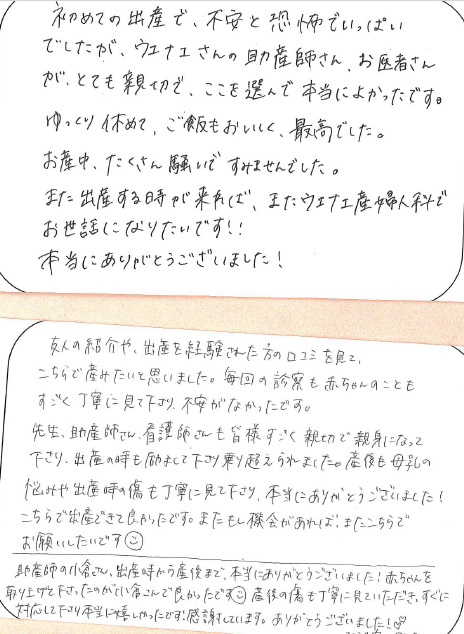 初めての出産で、不安と恐怖でいっぱい
でしたが、ウエナエさんの助産師さん、お医者さん
が、とても親切で、ここを選んで本当によかったです。
ゆっくり休めて、ご飯もおいしく、最高でした。
お産中、たくさん騒いですみませんでした。
また出産する時が来れば、またウエナエ産婦人科で
お世話になりたいです!!
本当にありがとうございました!
友人の紹介や、出産を経験された方の口コミを見て、
こちらで産みたいと思いました。毎回の診察も赤ちゃんのことも
すごく丁寧に見て下さり、不安がなかったです。
先生、助産師さん、看護師さんも皆様すごく親切で親身になって
下さり、出産の時も励まして下さり乗り超えられました。産後も母乳の
悩みや出産時の傷も丁寧に見て下さり、本当にありがとうございました!
こちらで出産できて良かったです。またもし機会があれば、またこちらで
お願いしたいです
助産師の小倉さん、出産時から産後まで、本当にありがとうございました!赤ちゃんを
取り上げて下さったのが小倉さんで良かったです 産後の傷も丁寧に見ていただき、すぐに
対応して下さり本当に嬉しかったです!感謝しています。ありがとうございました!